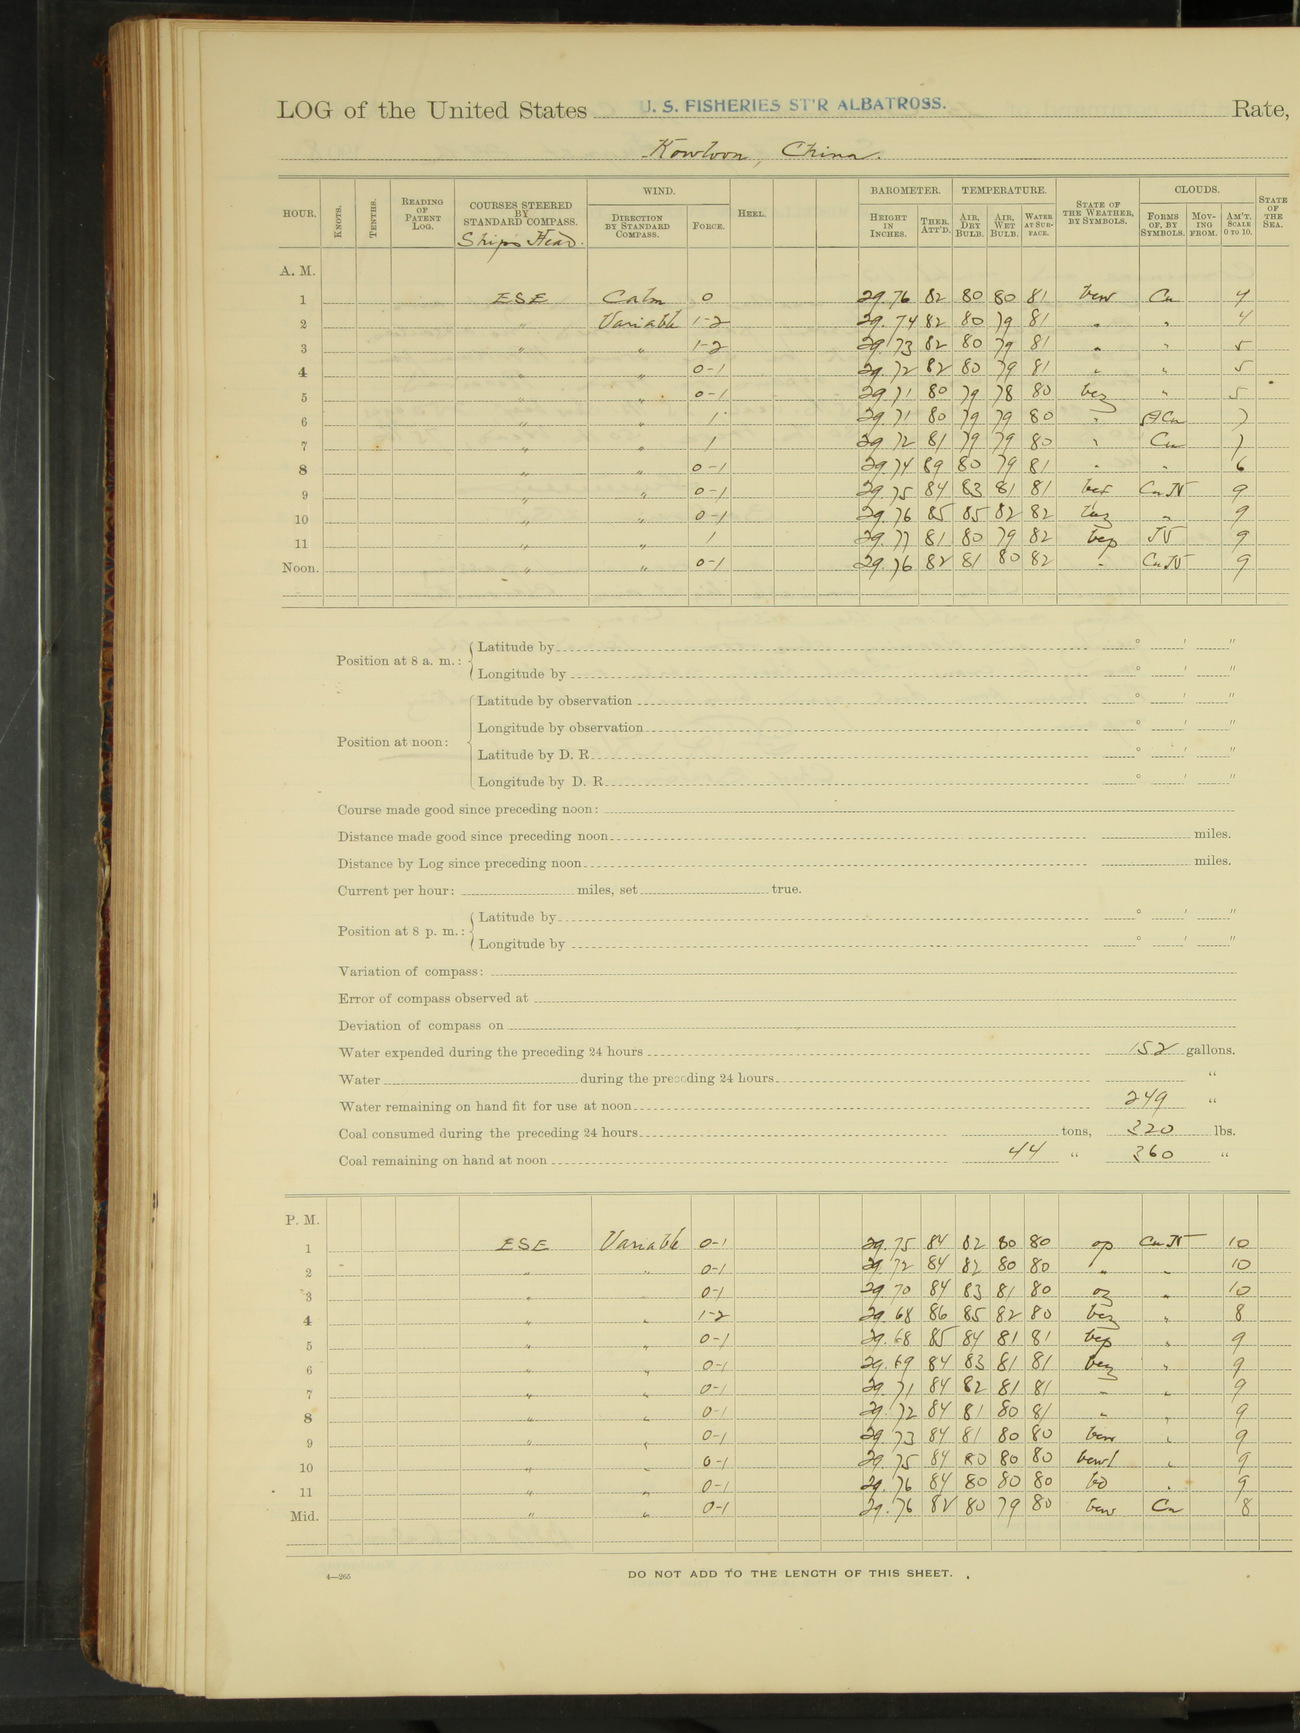 LOG of the United States U. S. FISHERIES ST'R ALBATROSS. Rate,
Kowloon, China.
HOUR. KNOTS. TENTHS. READING OF PATENT LOG. COURSES STEERED BY STANDARD COMPASS. Ship's Head. WIND. DIRECTION BY STANDARD COMPASS. FORCE. HEEL. BAROMETER. HEIGHT IN INCHES. THER. ATT'D. TEMPERATURE. AIR, DRY BULB. AIR, WET BULB. WATER AT SURFACE. STATE OF THE WEATHER, BY SYMBOLS. CLOUDS. FORMS OF, BY SYMBOLS. MOVING FROM. AM'T, SCALE 0 TO 10. STATE OF THE SEA.
A. M.
1 ESE Calm 0 29.76 82 80 80 81 bcw Cu 4
2 " Variable 1-2 29.74 82 80 79 81 " " 4
3 " " 1-2 29.73 82 80 79 81 " " 5
4 " " 0-1 29.72 82 80 79 81 " " 5
5 " " 0-1 29.71 80 79 78 80 bcz " 5
6 " " 1 29.71 80 79 79 80 " 7
7 " " 1 29.72 81 79 79 80 " Cu 7
8 " " 0-1 29.74 89 80 79 81 " " 6
9 " " 0-1 29.75 84 83 81 81 Cu N 9
10 " " 0-1 29.76 85 85 82 82 bcz " 9
11 " " 1 29.77 81 80 79 82 bcp N 9
Noon. " " 0-1 29.76 82 81 80 82 " Cu N 9
Position at 8 a. m.: Latitude by ° ' "
Longitude by ° ' "
Position at noon: Latitude by observation ° ' "
Longitude by observation ° ' "
Latitude by D. R. ° ' "
Longitude by D. R. ° ' "
Course made good since preceding noon:
Distance made good since preceding noon miles.
Distance by Log since preceding noon miles.
Current per hour: miles, set true.
Position at 8 p. m.: Latitude by ° ' "
Longitude by ° ' "
Variation of compass:
Error of compass observed at
Deviation of compass on
Water expended during the preceding 24 hours 152 gallons.
Water during the preceding 24 hours "
Water remaining on hand fit for use at noon 249 "
Coal consumed during the preceding 24 hours tons, 320 lbs.
Coal remaining on hand at noon 44 " 360 "
P. M.
1 ESE Variable 0-1 29.75 84 82 80 80 op Cu N 10
2 " " 0-1 29.72 84 82 80 80 " " 10
3 " " 0-1 29.70 84 83 81 80 oz " 10
4 " " 1-2 29.68 86 85 82 80 bcz " 8
5 " " 0-1 29.68 85 84 81 81 bcp " 9
6 " " 0-1 29.69 84 83 81 81 bcz " 9
7 " " 0-1 29.71 84 82 81 81 " " 9
8 " " 0-1 29.72 84 81 80 81 " " 9
9 " " 0-1 29.73 84 81 80 80 bcw " 9
10 " " 0-1 29.75 84 80 80 80 bcwl " 9
11 " " 0-1 29.76 84 80 80 80 " 9
Mid. " " 0-1 29.76 82 80 79 80 bcw Cu 8
4—265
DO NOT ADD TO THE LENGTH OF THIS SHEET.